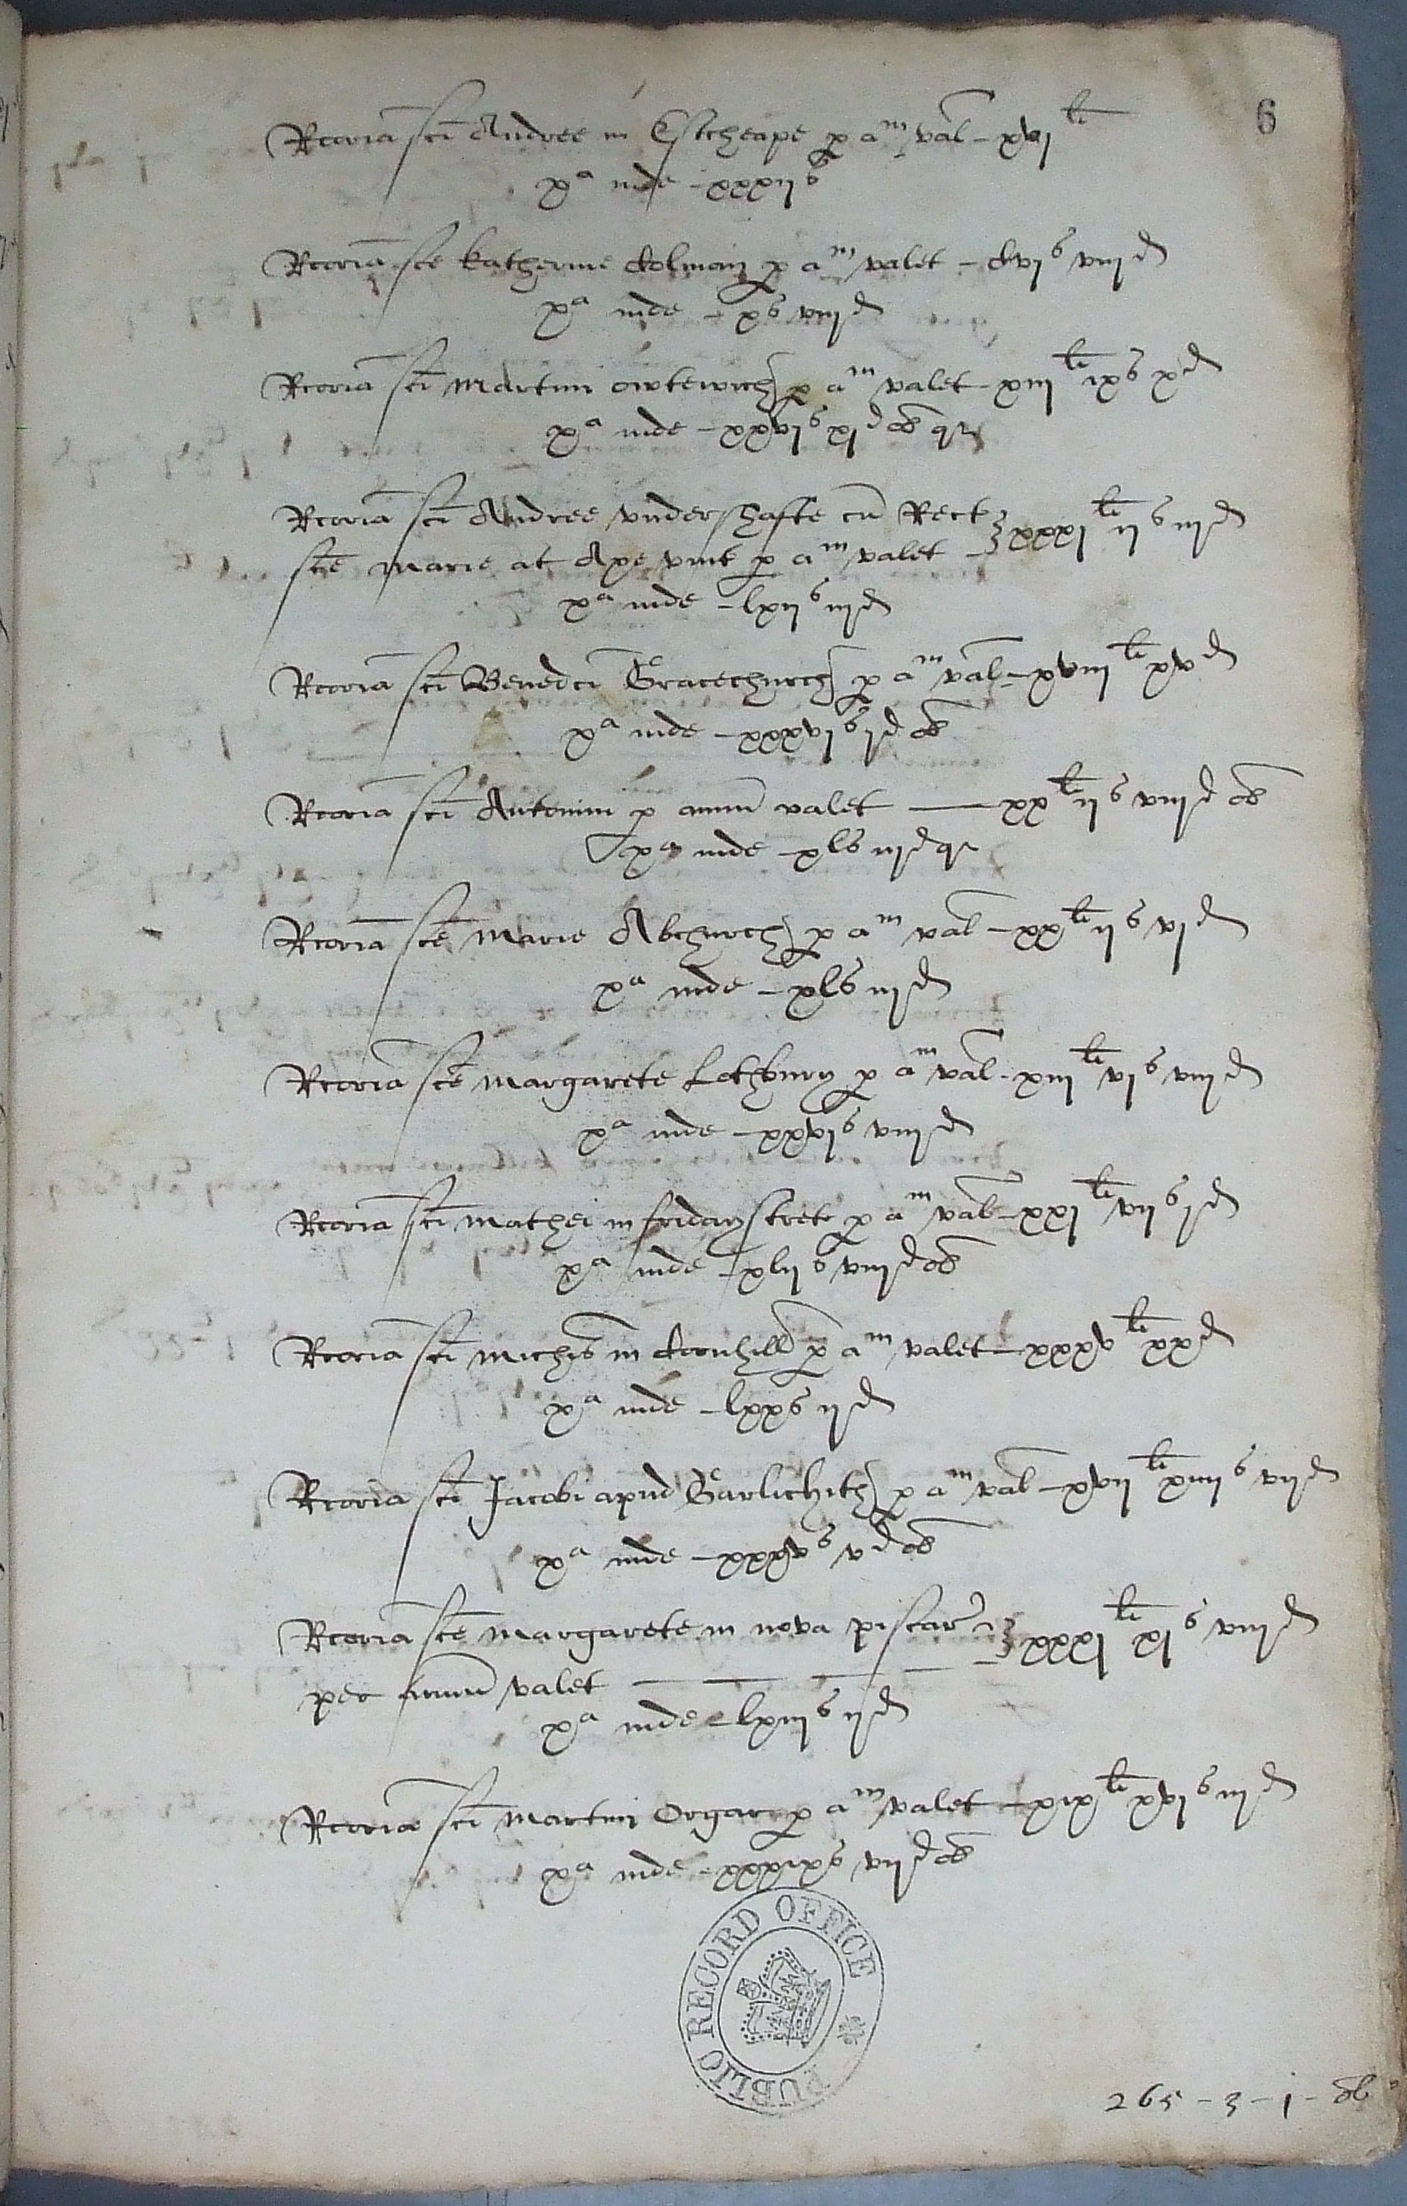 6
Rcoria sci Andree in Estcheape p a^m val – xvj^li
x^a inde – xxxij^s
Rcoria sce Katherine Colman p a^m valet – cvj^s viij^d
x^a inde – x^s viij^d
Rcoria sci Martini Owtewich p a^m valet – xiij^li ix^s x^d
x^a inde – xxvj^s xj^d ob qr
Rcoria sci Andree Undershafte cu Rect
sce Marie at Axe unit p a^m valet – xxxj^li ij^s iij^d
x^a inde – lxij^s iij^d
Rcoria sci Benedci Gracechurch p a^m val – xviij^li xv^d
x^a inde – xxxvj^s j^d ob
Rcoria sci Antonini p annu valet — xx^li ij^s viij^d ob
x^a inde – xl^s iij^d qr
Rcoria sce Marie Abchurch p a^m val – xx^li ij^s vj^d
x^a inde – xl^s iij^d
Rcoria sce Margarete Lothbury p a^m val – xiij^li vj^s viij^d
x^a inde – xxvj^s viij^d
Rcoria sci Mathei in Fridaystrete p a^m val – xxj^li vij^s j^d
x^a inde – xlij^s viij^d ob
Rcoria sci Michis in Cornhill p a^m valet – xxxv^li xx^d
x^a inde – lxx^s ij^d
Rcoria sci Jacobi apud Garlichith p a^m val – xvij^li xiiij^s vij^d
x^a inde – xxxv^s v^d ob
Rcoria sce Margarete in nova piscar xxxj^li xj^s viij^d
per annu valet
x^a inde – lxiij^s ij^d
Rcoria sci Martini Orgar p a^m valet – xix^li xvj^s iij^d
x^a inde – xxxix^s vij^d ob
PUBLIC RECORD OFFICE
265 – 3 – j – ob